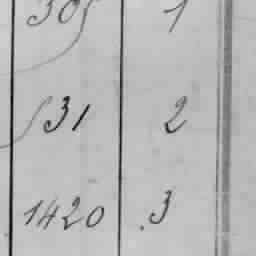 305 1
531 2
1420 3